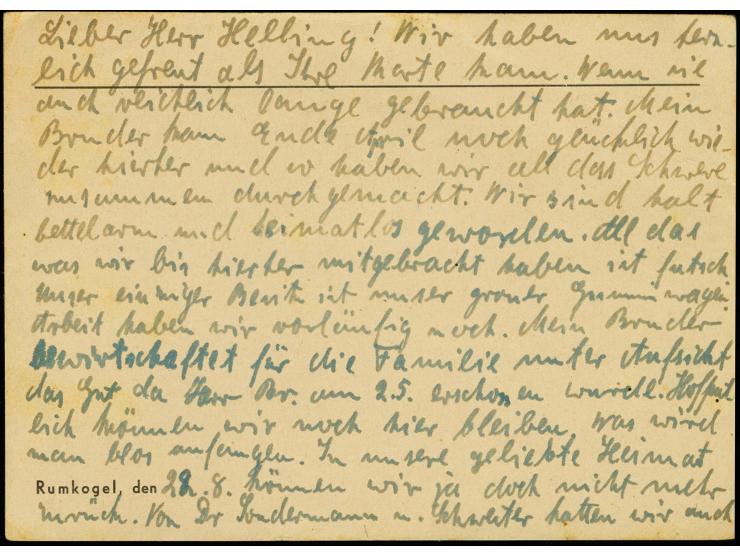 Lieber Herr Helling! Wir haben uns herz-
lich gefreut als Ihre Karte kam. Wenn sie
auch reichlich lange gebraucht hat. Mein
Bruder kam Ende April noch glücklich wie-
der hierher und so haben wir all das Schwere
zusammen durchgemacht. Wir sind halt
bettelarm und heimatlos geworden. All das
was wir bis hierher mitgebracht haben ist futsch
unser einziger Besitz ist unser grosser Gummiwagen.
Arbeit haben wir vorläufig noch. Mein Bruder
bewirtschaftet für die Familie unter Aufsicht
das Gut da Herr Br. am 2.5. erschossen wurde. Hoffent
lich können wir noch hier bleiben, was wird
man blos anfangen. In unsere geliebte Heimat
Rumkogel, den 22.8. können wir ja doch nicht mehr
zurück. Von Dr Sondermann u. Schwester hatten wir auch